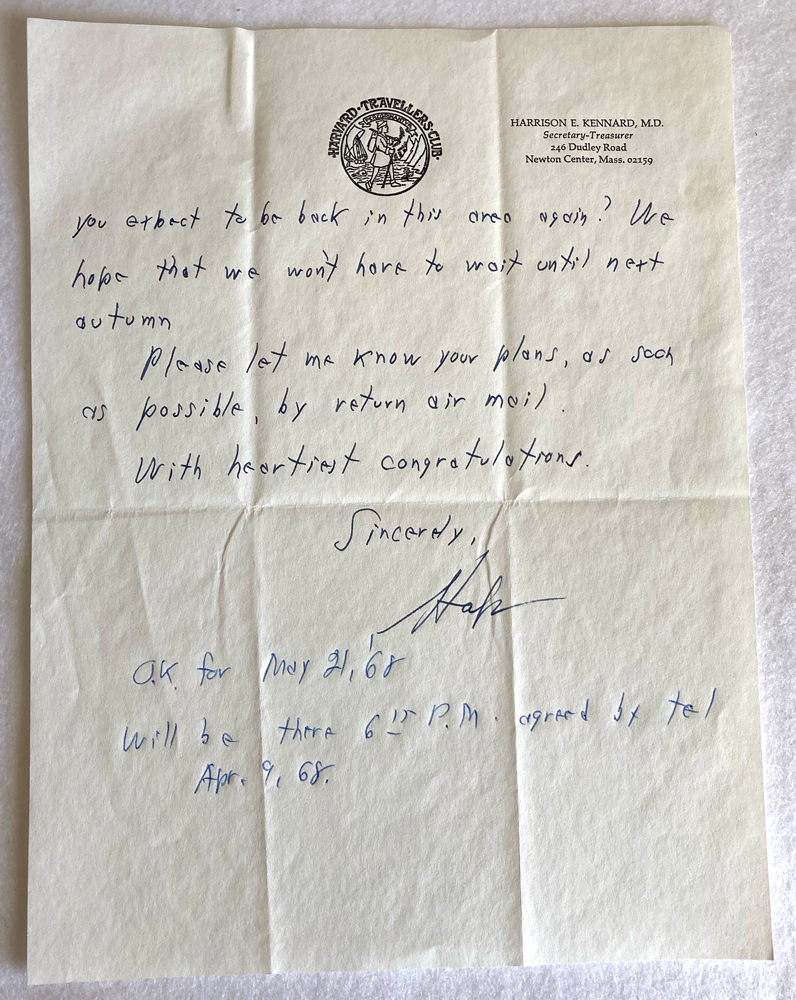 HARVARD·TRAVELLERS·CLUB·
HARRISON E. KENNARD, M.D.
Secretary-Treasurer
246 Dudley Road
Newton Center, Mass. 02159
you expect to be back in this area again? We
hope that we won't have to wait until next
autumn
Please let me know your plans, as soon
as possible, by return air mail.
With heartiest congratulations.
Sincerely,
O.K. for May 21, '68
Will be there 6 15 P.M. agreed by tel
Apr. 9, 68.